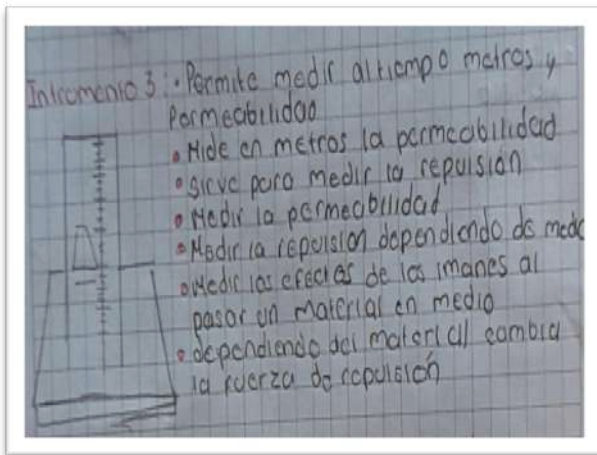 Intrumento 3: • Permite medir al tiempo metros y
Permeabilidad
• Mide en metros la permeabilidad
• sirve para medir la repulsión
• Medir la permeabilidad
• Medir la repulsion dependiendo de medio
• Medir los efectos de los imanes al
pasar un material en medio
• dependiendo del material cambia
la fuerza de repulsión